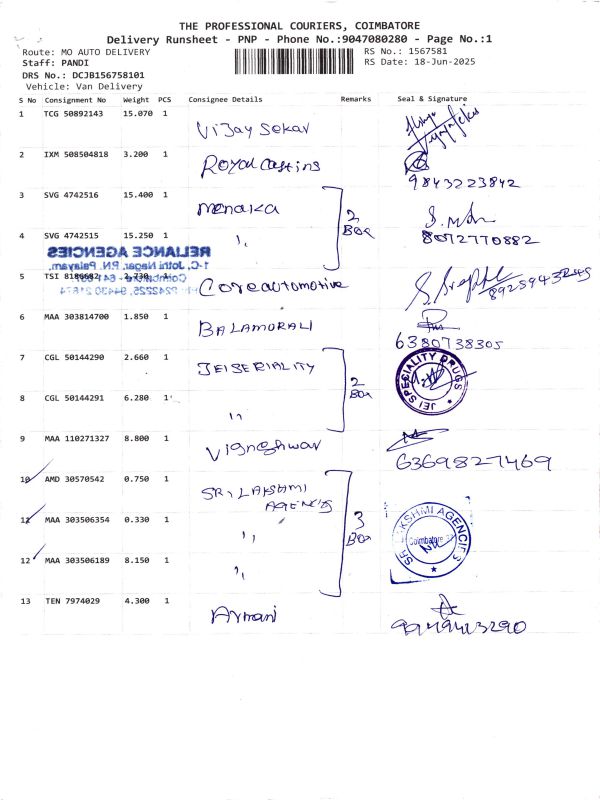 THE PROFESSIONAL COURIERS, COIMBATORE
Delivery Runsheet - PNP - Phone No.:9047080280 - Page No.:1
Route: MO AUTO DELIVERY
RS No.: 1567581
Staff: PANDI
RS Date: 18-Jun-2025
DRS No.: DCJB156758101
Vehicle: Van Delivery
S No Consignment No Weight PCS Consignee Details Remarks Seal & Signature
1 TCG 50892143 15.070 1 Vijay Sekar
2 IXM 508504818 3.200 1 Royal Castins 9843223842
3 SVG 4742516 15.400 1 Menaka 2 Box
4 SVG 4742515 15.250 1 " 8072770882
RELIANCE AGENCIES
5 TSI 8186682 2.730 1 Coreautomotive 8925943245
6 MAA 303814700 1.850 1 BALAMURALI 6380738305
7 CGL 50144290 2.660 1 JEISERIALITY 2 Box JEI SPECIALITY DRUGS
8 CGL 50144291 6.280 1 "
9 MAA 110271327 8.800 1 Vigneshwar 6369827469
10 AMD 30570542 0.750 1 SRI LAKSHMI AGENCIS 3 Box
11 MAA 303506354 0.330 1 " SRI LAKSHMI AGENCIES Coimbatore
12 MAA 303506189 8.150 1 "
13 TEN 7974029 4.300 1 Armani 9949413290